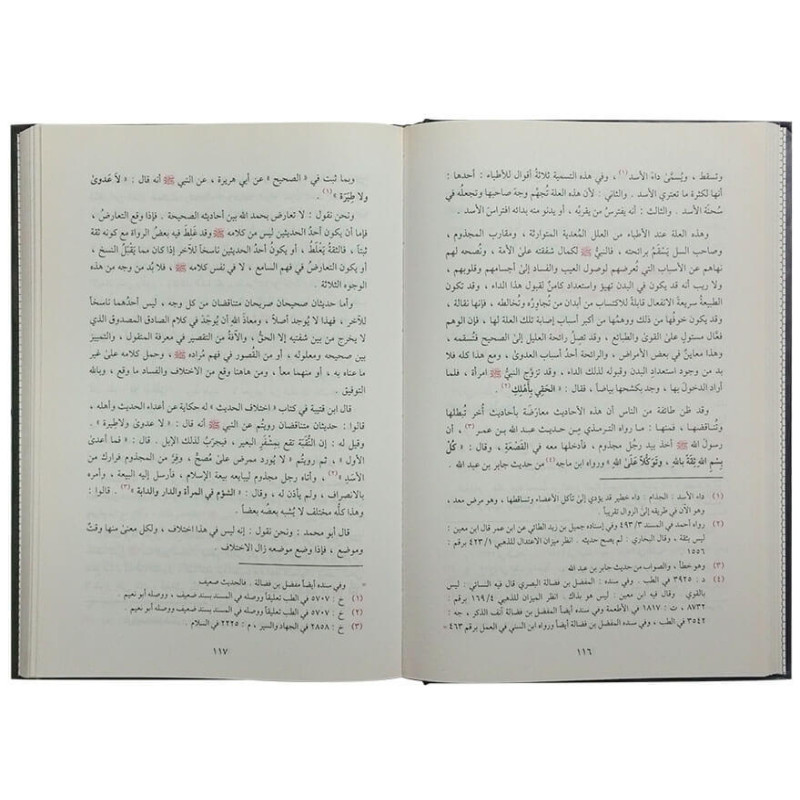 وتسقط ، ويُسمَّى داءَ الأسد (١) ، وفي هذه التسمية ثلاثةُ أقوال للأطباء : أحدها :
أنها لكثرة ما تعتري الأسد . والثاني : لأن هذه العلة تُجهِّم وجهَ صاحبها وتجعلُه في
سُحنة الأسد . والثالث : أنه يفترسُ من يقربُه ، أو يدنو منه بدائه افتراسَ الأسد .
وهذه العلة عند الأطباء من العلل المُعدية المتوارثة ، ومقاربُ المجذوم ،
وصاحبِ السل يَسْقَمُ برائحته ، فالنبيُّ ﷺ لكمال شفقته على الأمة ، ونُصحه لهم
نهاهم عن الأسباب التي تُعرضهم لوصول العيب والفساد إلى أجسامهم وقلوبهم ،
ولا ريب أنه قد يكون في البدن تهيؤ واستعداد كامنٌ لقبول هذا الداء ، وقد تكون
الطبيعةُ سريعةَ الانفعال قابلةً للاكتساب من أبدان من تُجاوِرُه وتُخالطه ، فإنها نقالة ،
وقد يكون خوفُها من ذلك ووهمُها من أكبر أسباب إصابة تلك العلة لها ، فإن الوهم
فعَّال مستولٍ على القوى والطبائع ، وقد تصِلُ رائحة العليل إلى الصحيح فتُسقمه ،
وهذا معاينٌ في بعض الأمراض ، والرائحة أحدُ أسباب العدوى ، ومع هذا كله فلا
بد من وجود استعداد البدن وقبوله لذلك الداء ، وقد تزوَّج النبيُّ ﷺ امرأة ، فلما
أراد الدخولَ بها ، وجد بكشحها بياضاً ، فقال : « الحَقِي بأَهْلِكِ » (٢) .
وقد ظن طائفة من الناس أن هذه الأحاديث معارَضة بأحاديث أُخر تُبطلها
وتُناقضها ، فمنها : ما رواه الترمذي من حديث عبد الله بن عمر (٣) ، أن
رسولَ الله ﷺ أخذ بيد رجلٍ مجذوم ، فأدخلها معه في القَصْعَةِ ، وقال : « كُلْ
بِسْمِ اللهِ ثِقَةً باللهِ ، وتَوَكُّلاً عَلَى اللهِ » ورواه ابن ماجه (٤) من حديث جابر بن عبد الله .
(١) داء الأسد : الجذام : داء خطير قد يؤدي إلى تآكل الأعضاء وتساقطها ، وهو مرض معد ،
وهو الآن في طريقه إلى الزوال تقريباً .
(٢) رواه أحمد في المسند ٤٩٣/٣ وفي إسناده جميل بن زيد الطائي عن ابن عمر قال ابن معين :
ليس بثقة ، وقال البخاري : لم يصح حديثه . انظر ميزان الاعتدال للذهبي ٤٢٣/١ برقم :
١٥٥٦
(٣) وهو خطأ ، والصواب من حديث جابر بن عبد الله
(٤) د : ٣٩٢٥ في الطب . وفي سنده المفضل بن فضالة البصري قال فيه النسائي : ليس
بالقوي . وقال فيه ابن معين : ليس هو بذاك . انظر الميزان للذهبي ١٦٩/٤ برقم :
٨٧٣٢ ، ت : ١٨١٧ في الأطعمة وفي سنده أيضاً المفضل بن فضالة آنف الذكر ، جه :
٣٥٤٢ في الطب ، وفي سنده المفضل بن فضالة أيضاً ورواه ابن السني في العمل برقم ٤٦٣ =
١١٦
وبما ثبت في « الصحيح » عن أبي هريرة ، عن النبي ﷺ أنه قال : « لاَ عَدوىٰ
ولا طِيَرَة » (١) .
ونحن نقول : لا تعارض بحمد الله بين أحاديثه الصحيحة . فإذا وقع التعارضُ ،
فإما أن يكون أحدُ الحديثين ليس من كلامه ﷺ وقد غَلِطَ فيه بعضُ الرواة مع كونه ثقة
ثبتاً ، فالثقةُ يَغْلَطُ ، أو يكونُ أحدُ الحديثين ناسخاً للآخر إذا كان مما يَقْبَلُ النسخ ،
أو يكون التعارضُ في فهم السامع ، لا في نفس كلامه ﷺ ، فلا بُد من وجه من هذه
الوجوه الثلاثة .
وأما حديثان صحيحان صريحان متناقضان من كل وجه ، ليس أحدُهما ناسخاً
للآخر ، فهذا لا يُوجد أصلاً ، ومعاذَ اللهِ أن يُوجَدَ في كلام الصادق المصدوق الذي
لا يخرج من بين شفتيه إلا الحقُّ ، والآفةُ من التقصير في معرفة المنقول ، والتمييز
بين صحيحه ومعلوله ، أو من القُصور في فهم مُراده ﷺ ، وحمل كلامه على غير
ما عناه به ، أو منهما معاً ، ومن هاهنا وقع من الاختلاف والفساد ما وقع ، وبالله
التوفيق .
قال ابن قتيبة في كتاب « اختلاف الحديث » له حكاية عن أعداء الحديث وأهله ،
قالوا : حديثان متناقضان رويتم عن النبي ﷺ أنه قال : « لا عدوىٰ ولاطِيرَة » .
وقيل له : إن النُّقْبَة تقع بمِشْفَرِ البعير ، فيجرَبُ لذلك الإبل . قال : « فما أعدىٰ
الأول » ، ثم رويتم « لا يُورد ممرض علىٰ مُصحّ ، وفِرَّ من المجذوم فرارك من
الأسَدِ » (٢) ، وأتاه رجل مجذوم ليبايعه بيعة الإسلام ، فأرسل إليه البيعة ، وأمره
بالانصراف ، ولم يأذن له ، وقال : « الشؤم في المرأة والدار والدابة » (٣) . قالوا :
وهذا كلُّه مختلف لا يُشبه بعضُه بعضاً .
قال أبو محمد : ونحن نقول : إنه ليس في هذا اختلاف ، ولكل معنىٰ منها وقتٌ
وموضع ، فإذا وضع موضعه زال الاختلاف .
= وفي سنده أيضاً مفضل بن فضالة . فالحديث ضعيف
(١) خ : ٥٧٠٧ في الطب تعليقاً ووصله في المسند بسند ضعيف ، ووصله أبو نعيم .
(٢) خ : ٥٧٠٧ في الطب تعليقاً ووصله في المسند بسند ضعيف ووصله أبو نعيم .
(٣) خ : ٢٨٥٨ في الجهاد والسير ، م : ٢٢٢٥ في السلام .
١١٧